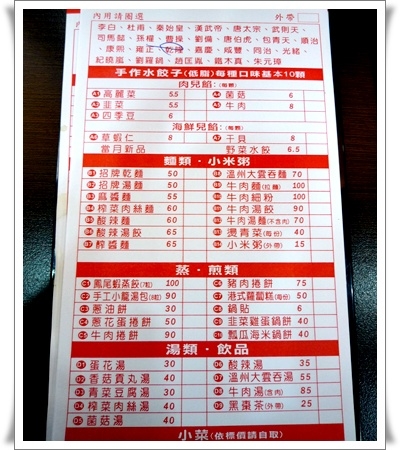 內用請圈選 外帶
李白、杜甫、秦始皇、漢武帝、唐太宗、武則天、
司馬懿、孫權、曹操、劉備、唐伯虎、包青天、順治
、康熙、雍正、乾隆、嘉慶、咸豐、同治、光緒、
紀曉嵐、劉羅鍋、趙匡胤、鐵木真、朱元璋
手作水餃子(低脂)每種口味基本10顆
肉兒餡:(每顆)
A1 高麗菜 5.5 A4 菌菇 6
A2 韭菜 5.5 A5 牛肉 8
A3 四季豆 6
海鮮兒餡:(每顆)
A6 草蝦仁 8 A7 干貝 8
當月新品 野菜水餃 6.5
麵類・小米粥
B1 招牌乾麵 50 B8 溫州大雲吞麵 70
B2 招牌湯麵 50 B9 牛肉麵(拉麵) 100
B3 麻醬麵 55 牛肉細粉 100
B4 榨菜肉絲麵 60 牛肉湯餃 90
B5 酸辣麵 60 牛肉湯麵(不含肉) 70
B6 酸辣湯餃 65 燙青菜(每份) 40
B7 醡醬麵 65 小米粥(外帶) 15
蒸・煎類
C1 鳳尾蝦蒸餃(7粒) 100 C6 豬肉捲餅 75
C2 手工小籠湯包(8粒) 90 C7 港式蘿蔔糕(每份) 50
C3 蔥油餅 30 C8 鍋貼 6
C4 蔥花蛋捲餅 50 C9 韭菜雞蛋鍋餅 40
C5 牛肉捲餅 90 瓢瓜海米鍋餅 40
湯類・飲品
D1 蛋花湯 30 D6 酸辣湯 35
D2 香菇貢丸湯 40 D7 溫州大雲吞湯 55
D3 青菜豆腐湯 30 D8 牛肉湯(含肉) 85
D4 榨菜肉絲湯 40 D9 黑棗茶(外帶) 25
D5 菌菇湯 40
小菜(依標價請自取)